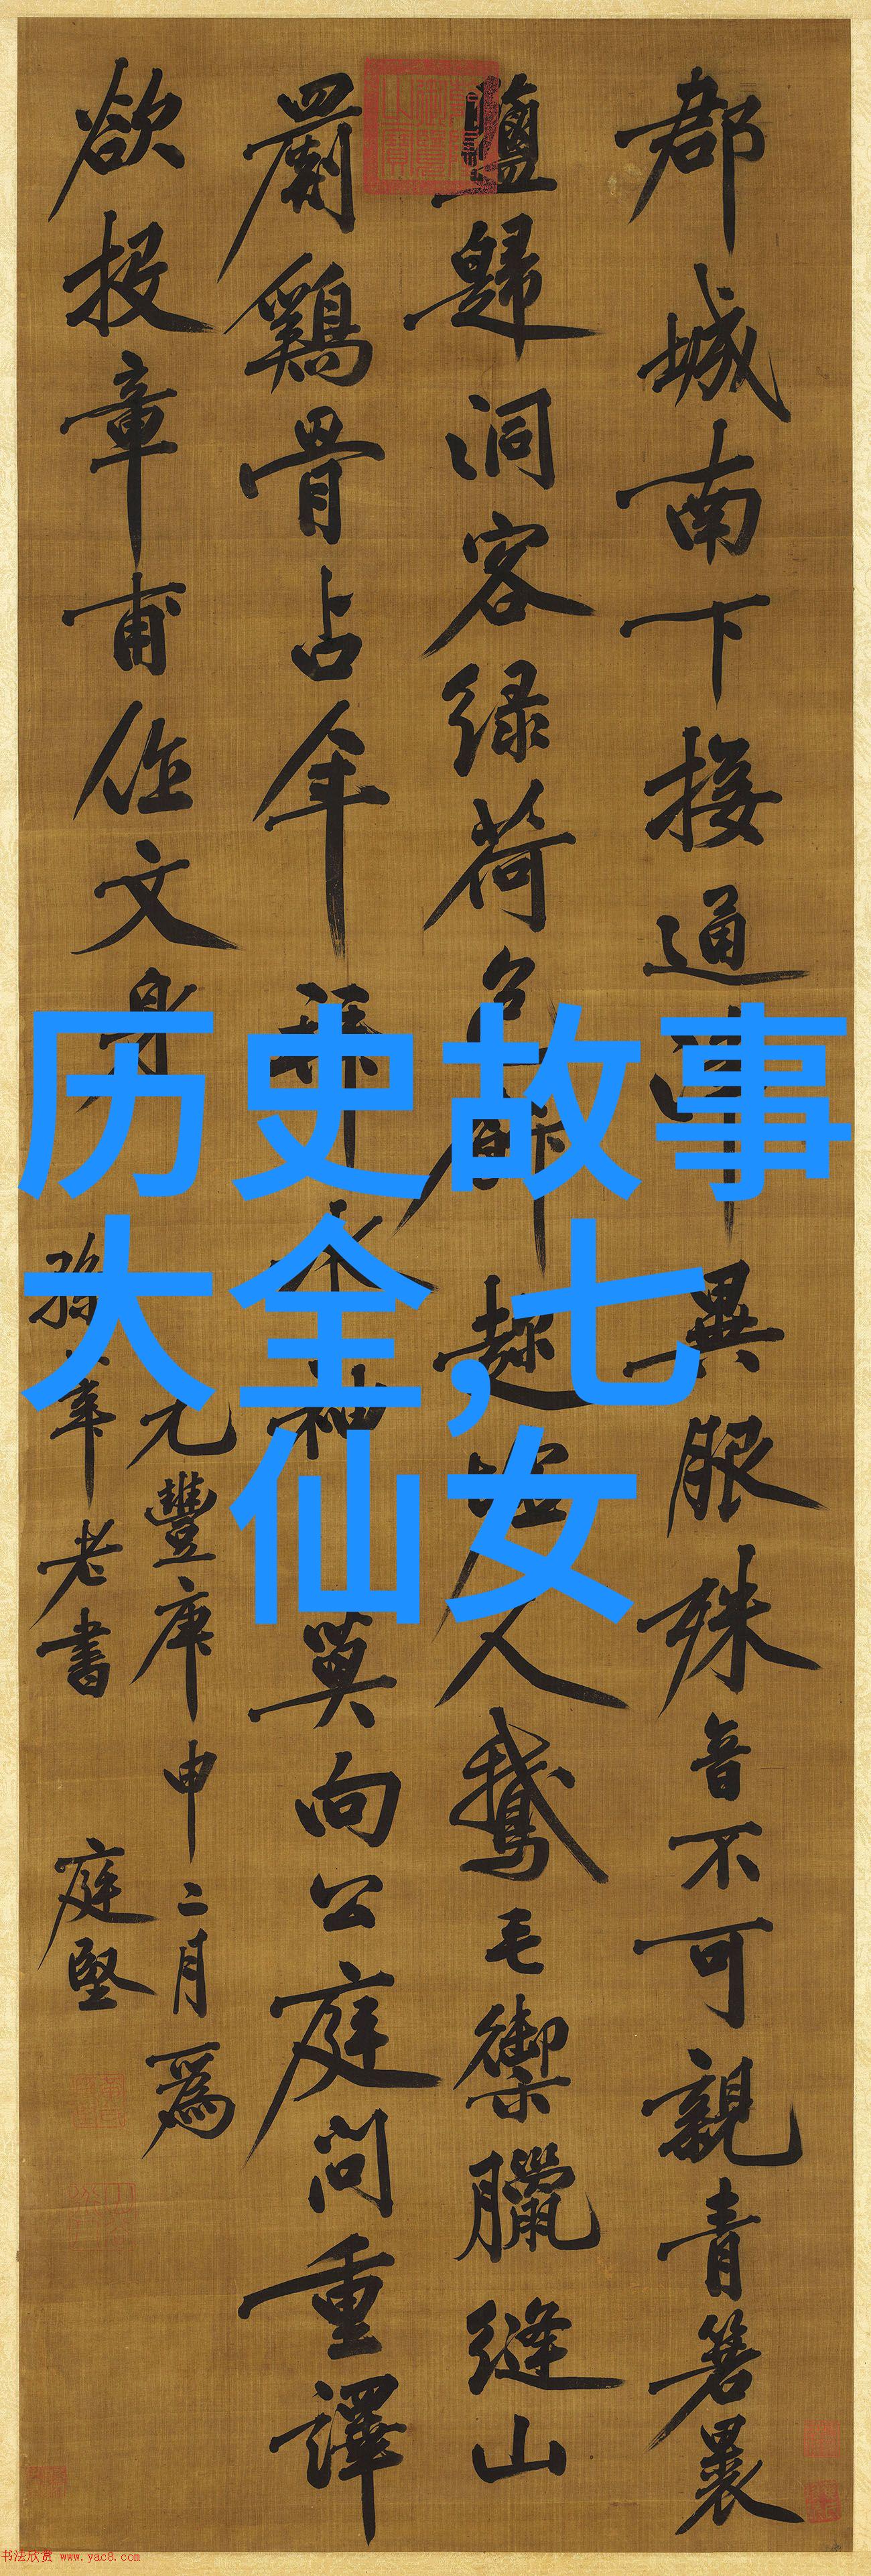 历史故事
大全,七
仙女
郡城南下接通津異服殊音不可親青箬裹
鹽歸洞客緑荷包飯趂虛人鵝毛禦臘縫山
罽鷄骨占年拜水神莫向公庭問重譯
欲投章甫作文身
元豐庚申二月為
孫莘老書
庭堅
书法欣赏 www.yac8.com